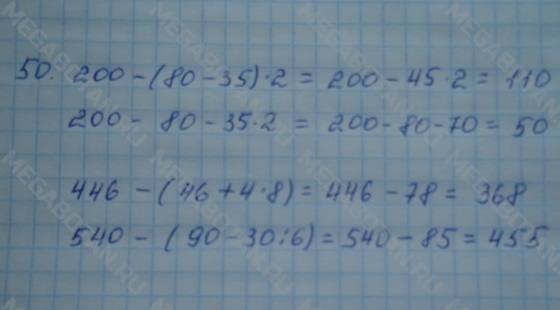 50. 200 - (80 - 35) · 2 = 200 - 45 · 2 = 110
200 - 80 - 35 · 2 = 200 - 80 - 70 = 50
446 - (46 + 4 · 8) = 446 - 78 = 368
540 - (90 - 30 : 6) = 540 - 85 = 455
MEGABOTAN.RU